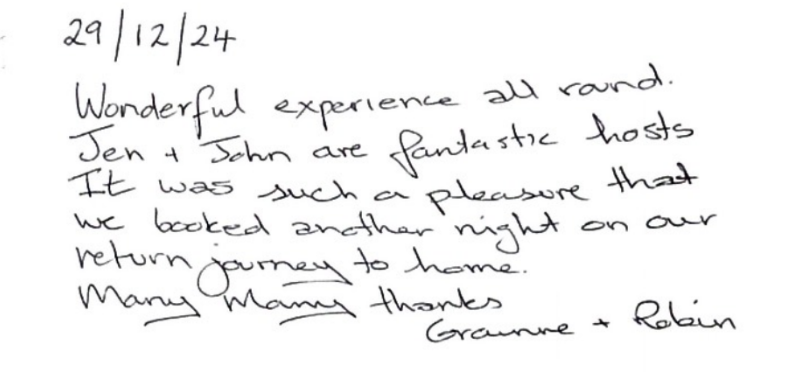 29/12/24
Wonderful experience all round.
Jen + John are fantastic hosts
It was such a pleasure that
we booked another night on our
return journey to home.
Many Many thanks
Grainne + Robin